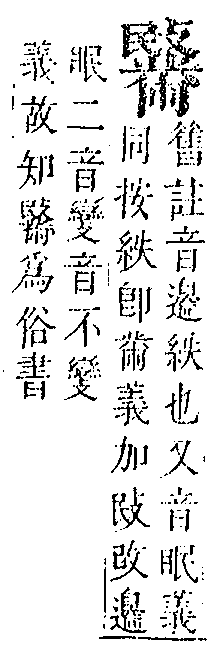 舊註音邊紩也又音眠義
同按紩卽黹義加敃改邊
眠二音變音不變
義故知爲俗書